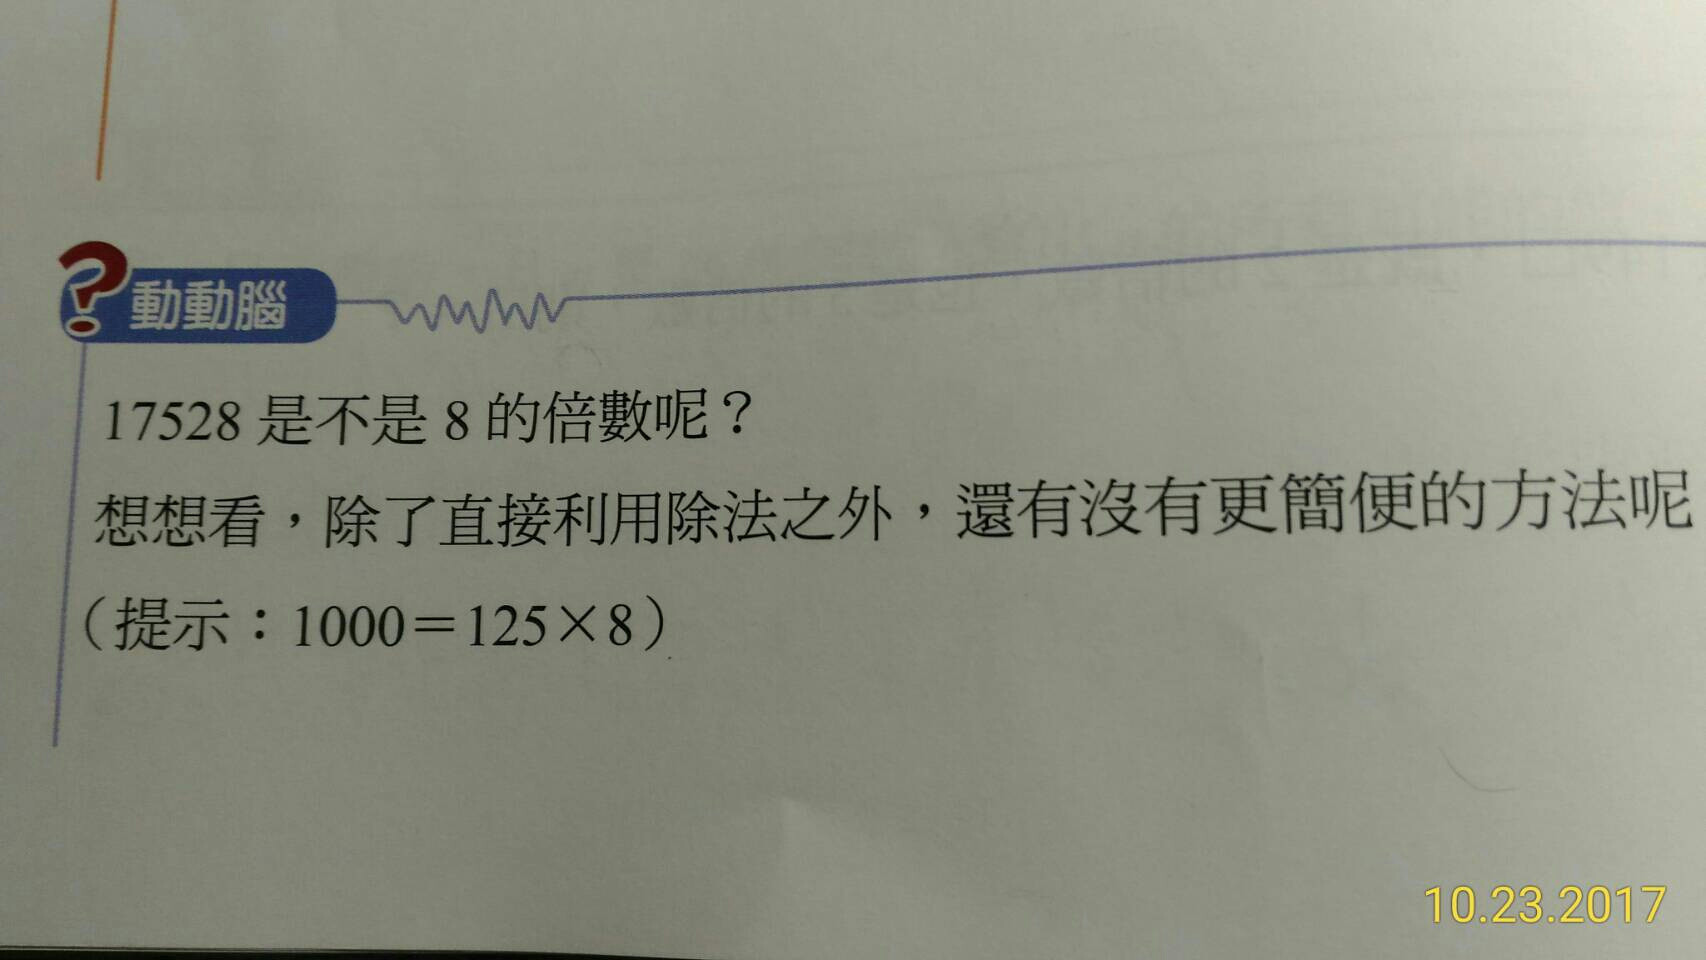 動動腦
17528 是不是 8 的倍數呢？
想想看，除了直接利用除法之外，還有沒有更簡便的方法呢
（提示：1000＝125×8）
10.23.2017